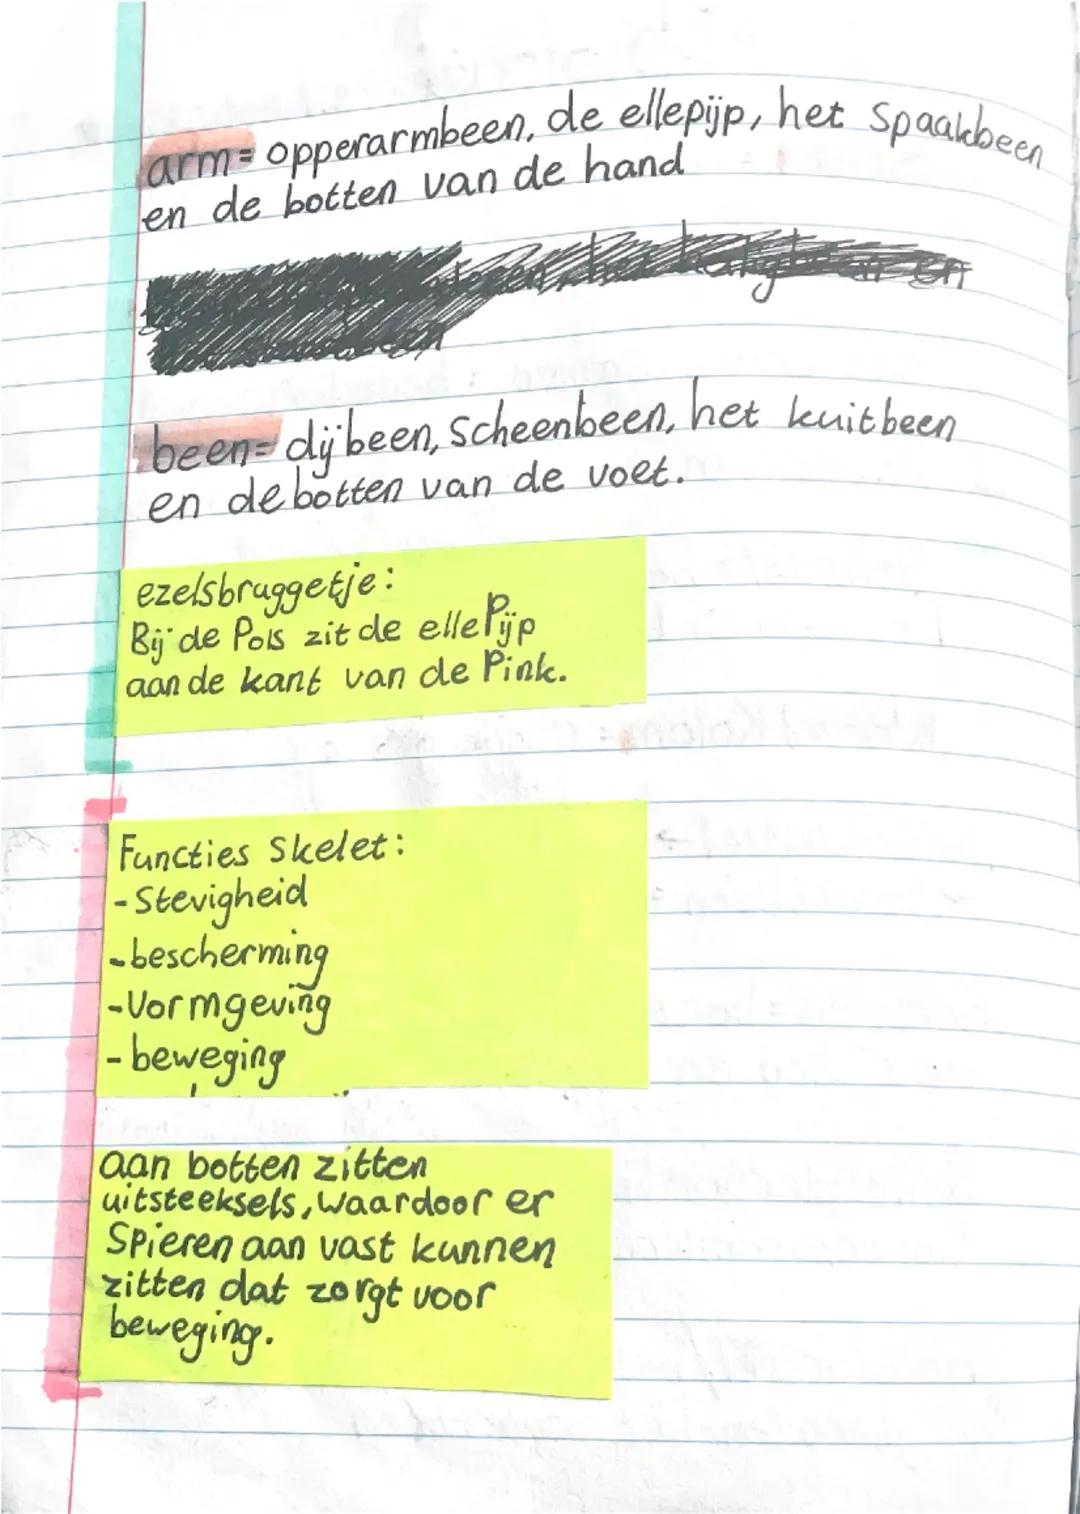 arm= opperarmbeen, de ellepijp, het Spaakbeen
en de botten van de hand
en
been= dijbeen, Scheenbeen, het kuitbeen
en de botten van de voet.
ezelsbruggetje:
Bij de Pols zit de ellePijp
aan de kant van de Pink.
Functies Skelet:
- Stevigheid
- bescherming
- Vormgeving
- beweging
aan botten zitten
uitsteeksels, waardoor er
Spieren aan vast kunnen
zitten dat zorgt voor
beweging.